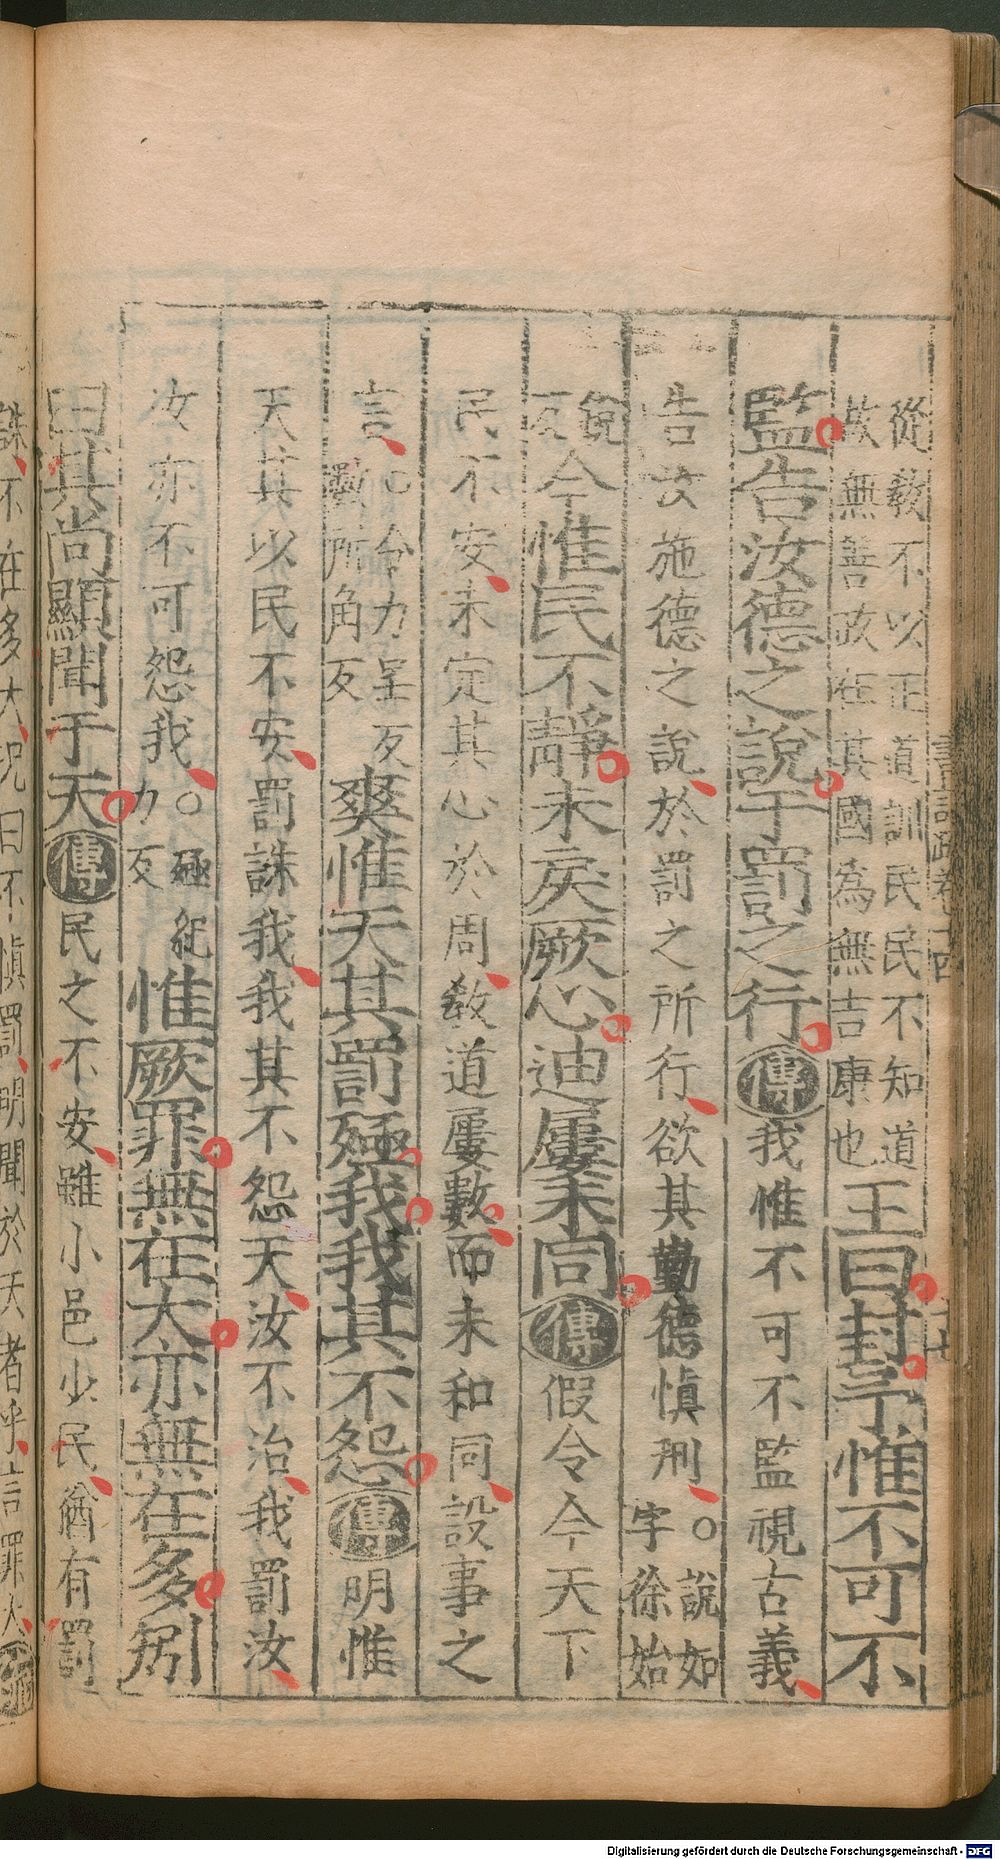 從教不以正道訓民民不知道
故無善政在其國為無吉康也
王曰封予惟不可不
監告汝德之說于罰之行傳我惟不可不監視古義
告汝施德之說於罰之所行欲其勤德慎刑○說如
字徐始
銳
反今惟民不靜未戾厥心迪屢未同傳假令今天下
民不安未定其心於周教道屢數而未和同設事之
言○令力呈反
數所角反
爽惟天其罰殛我我其不怨傳明惟
天其以民不安罰誅我我其不怨天汝不治我罰汝
汝亦不可怨我○殛紀
力反
惟厥罪無在大亦無在多矧
曰其尚顯聞于天傳民之不安雖小邑少民猶有罰
誅不在多大況曰不慎罰明聞於天者乎言罪大
Digitalisierung gefördert durch die Deutsche Forschungsgemeinschaft - DFG